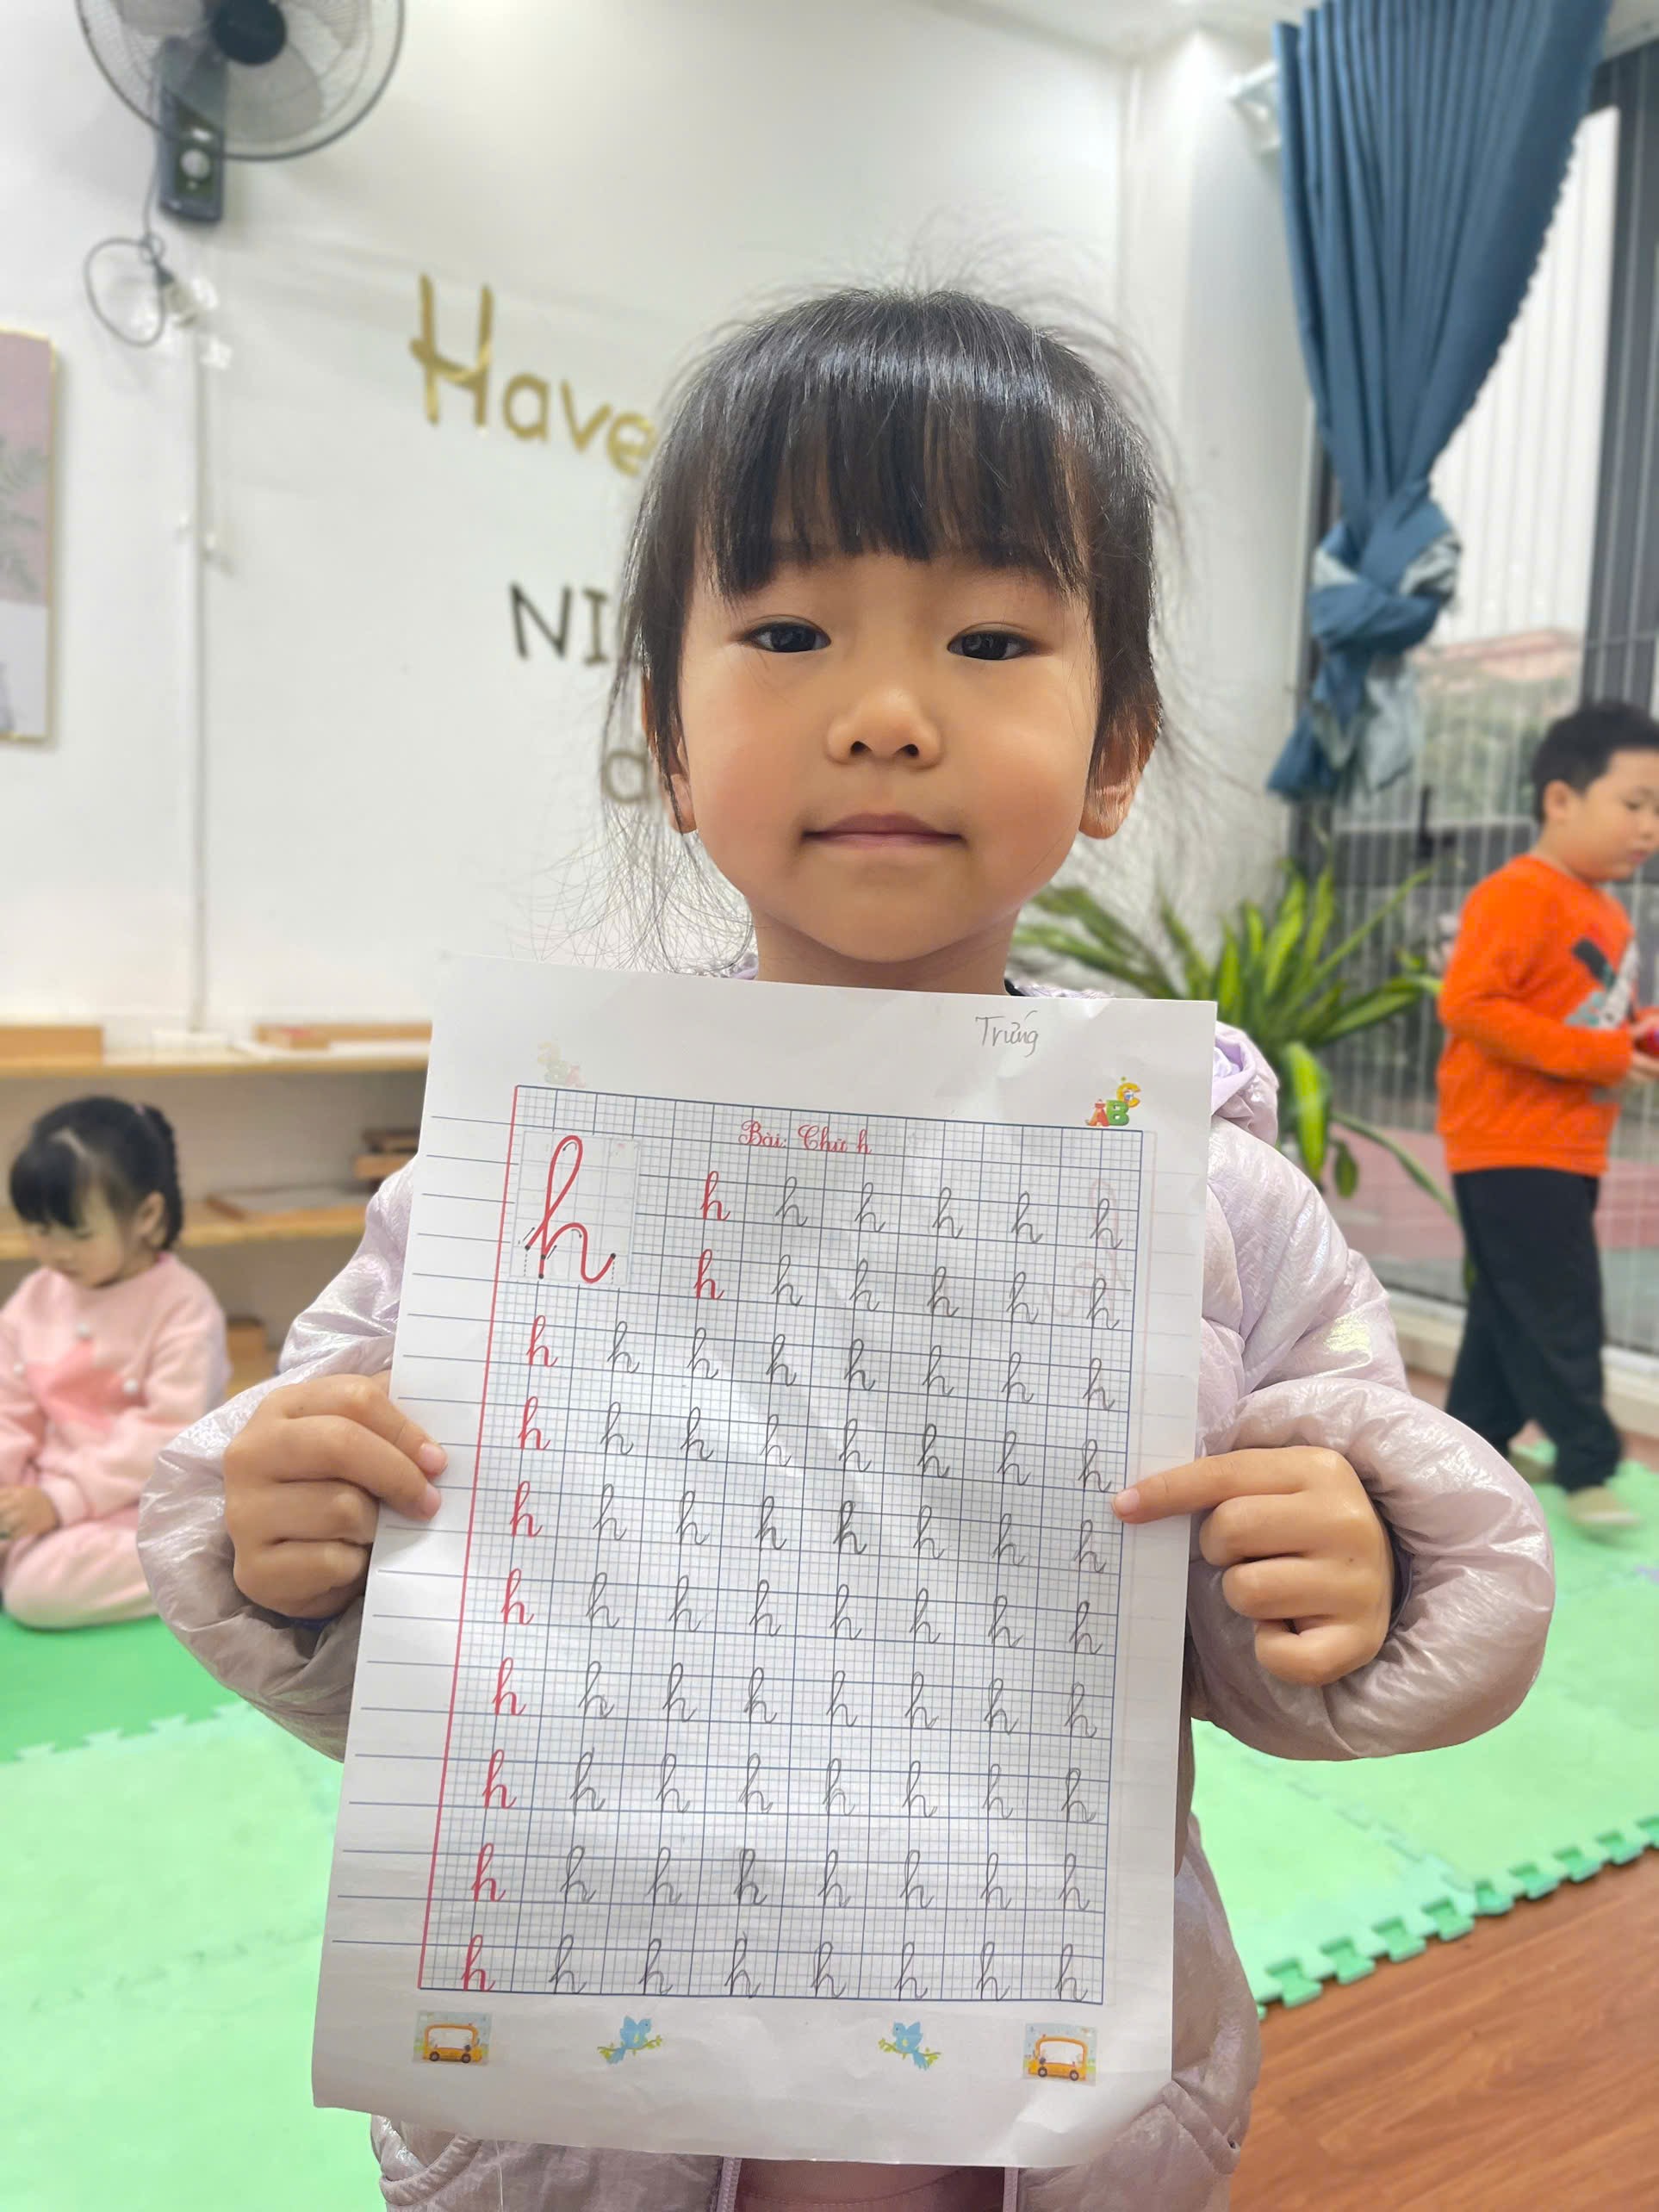 Have
NI
a
Trứng
ABC
Bài: Chữ h
h h h h h h h
h h h h h h
h h h h h h h h
h h h h h h h h
h h h h h h h h
h h h h h h h h
h h h h h h h h
h h h h h h h h
h h h h h h h h
h h h h h h h h